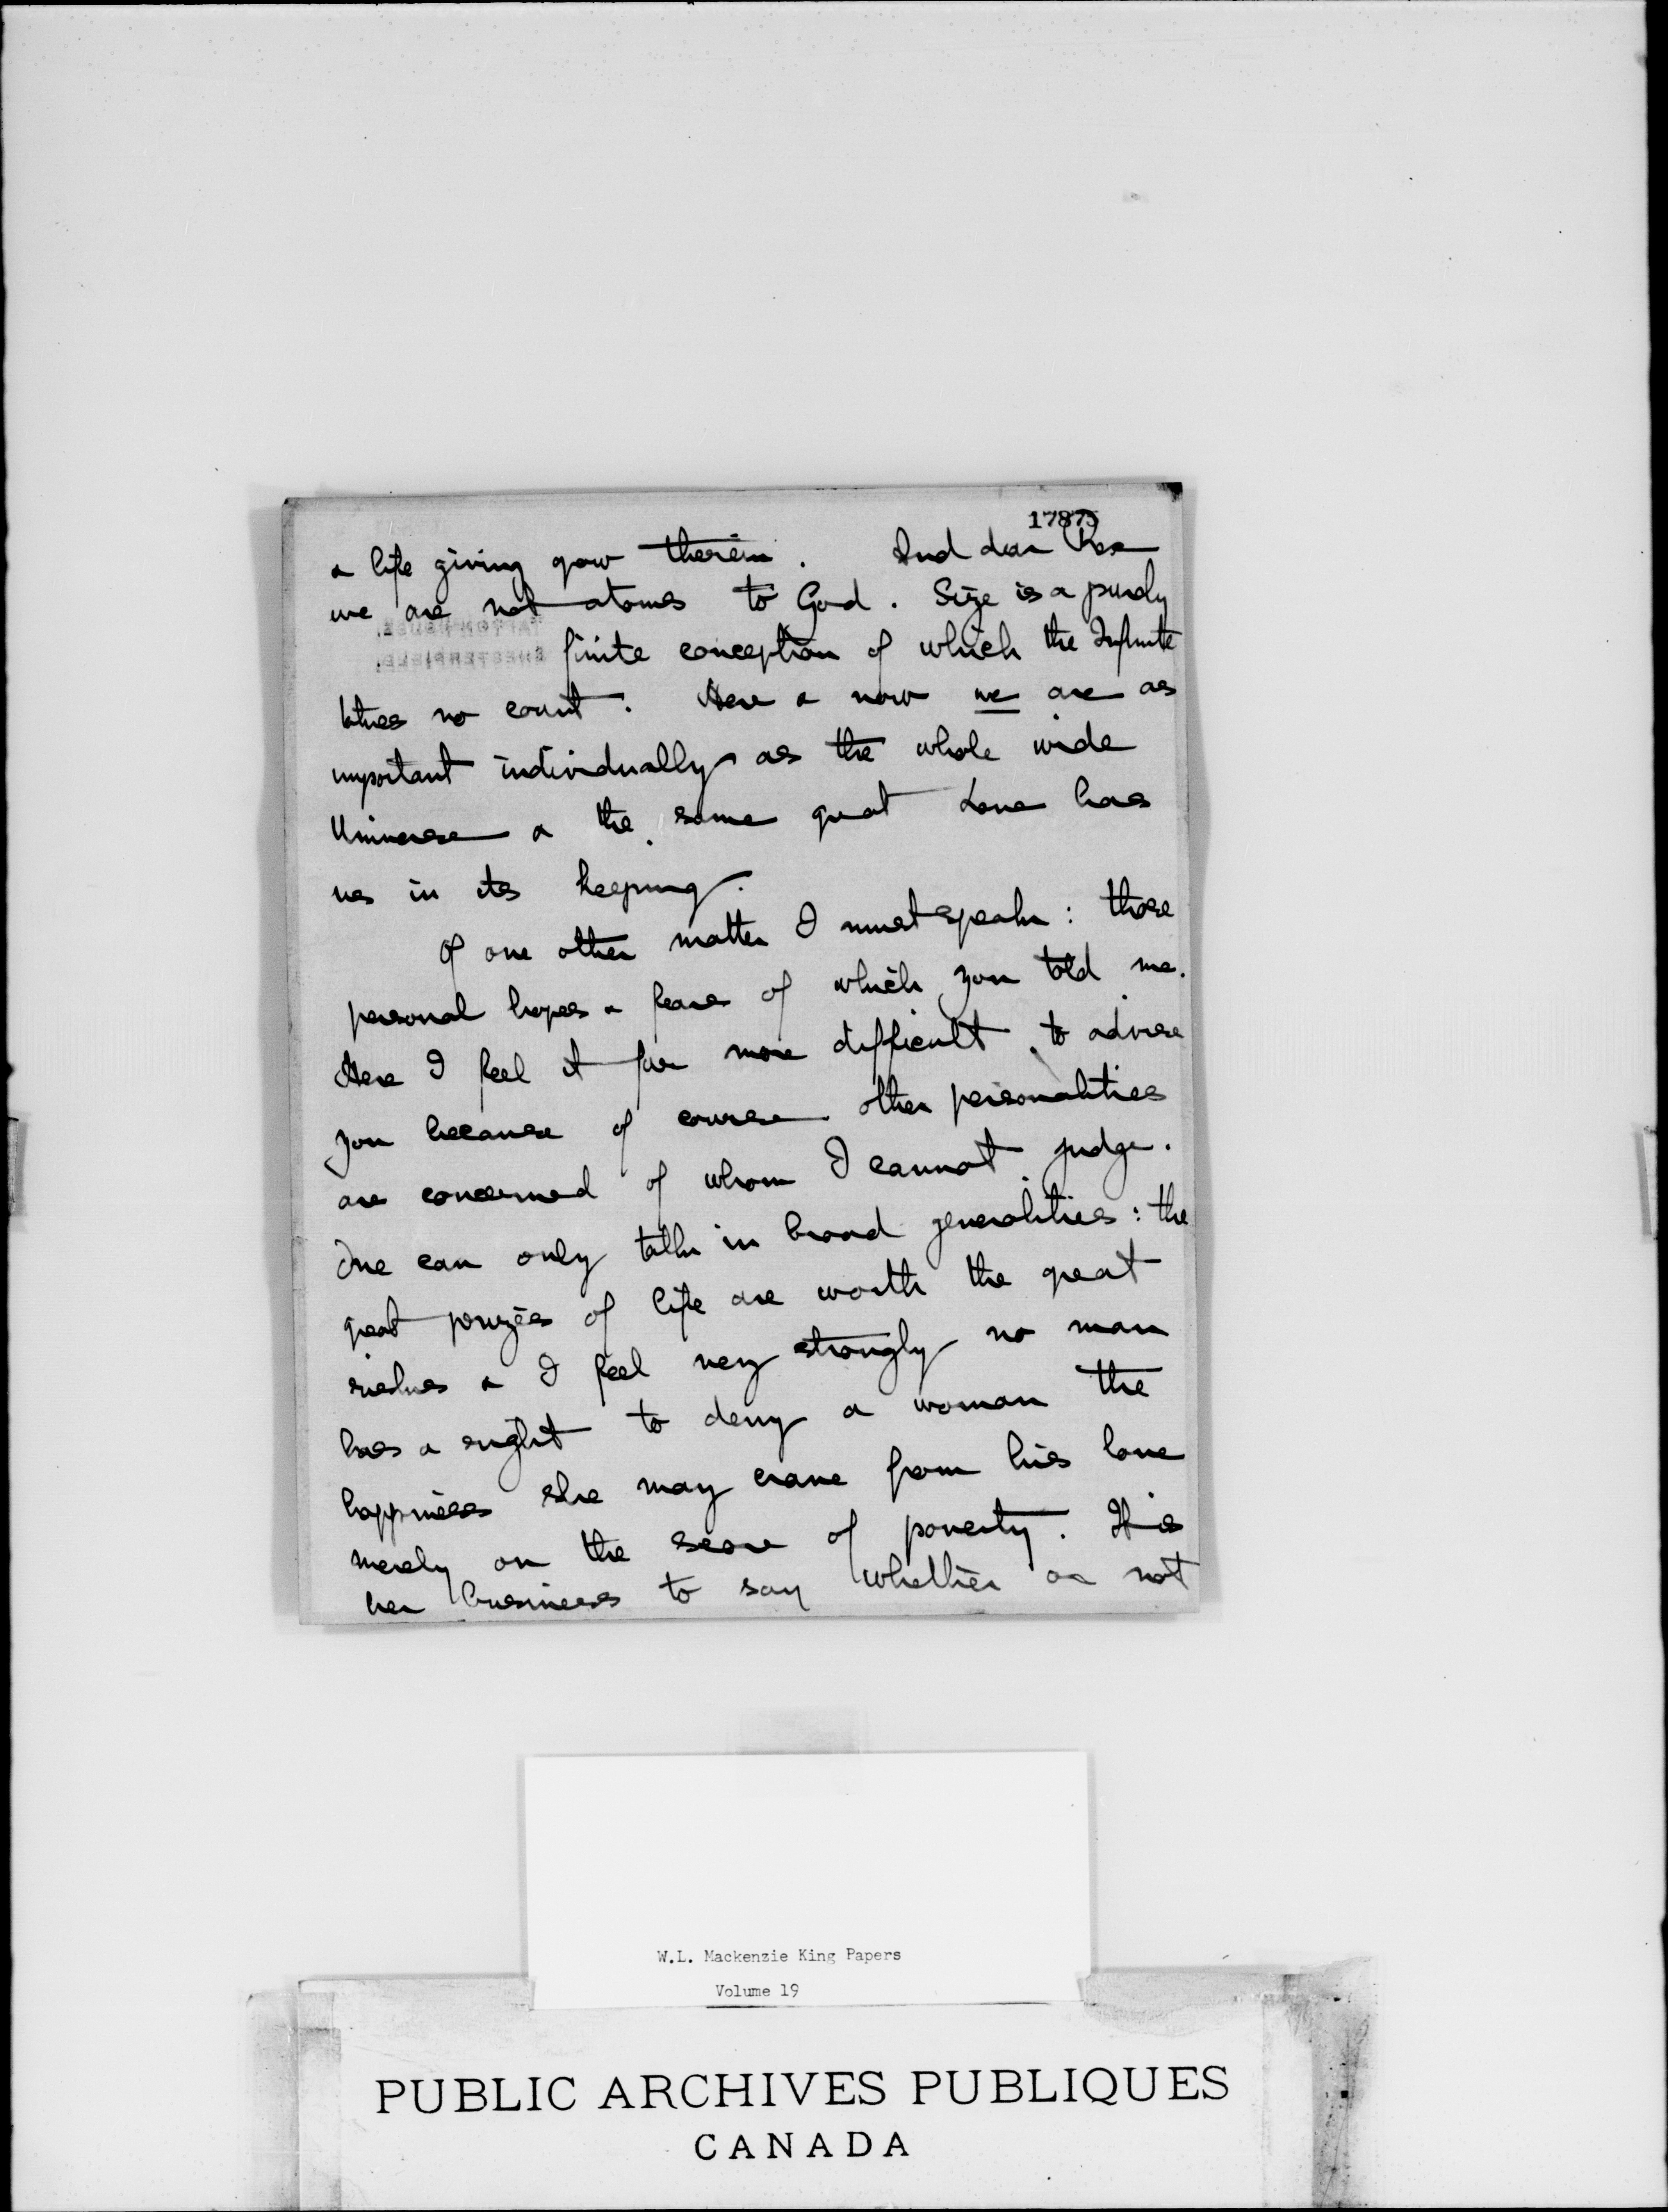 17875
& life giving grow therein. And dear Rex
we are not atoms to God. Size is a purely
finite conception of which the Infinite
takes no count. Here & now we are as
important individually as the whole wide
Universe & the same great Love has
us in its keeping.
Of one other matter I must speak: those
personal hopes & fears of which you told me.
Here I feel it far more difficult to advise
you because of course other personalities
are concerned of whom I cannot judge.
One can only talk in broad generalities: the
great prizes of life are worth the great
risks & I feel very strongly no man
has a right to deny a woman the
happiness she may crave from his love
merely on the score of poverty. It is
her business to say whether or not
W.L. Mackenzie King Papers
Volume 19
PUBLIC ARCHIVES PUBLIQUES
CANADA